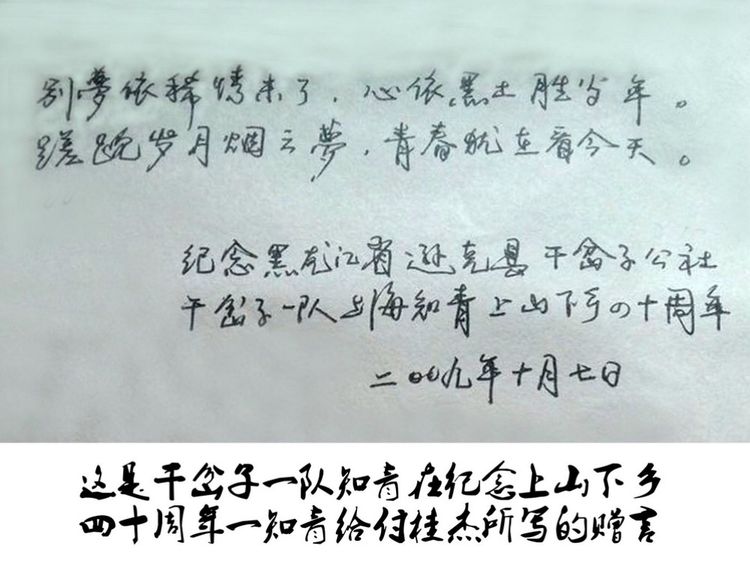 别夢依稀情未了，心依黑土胜当年。
蹉跎岁月烟云夢，青春犹在看今天。
纪念黑龙江省逊克县干岔子公社
干岔子一队上海知青上山下乡四十周年
二〇〇九年十月七日
这是干岔子一队知青在纪念上山下乡
四十周年一知青给付桂杰所写的赠言